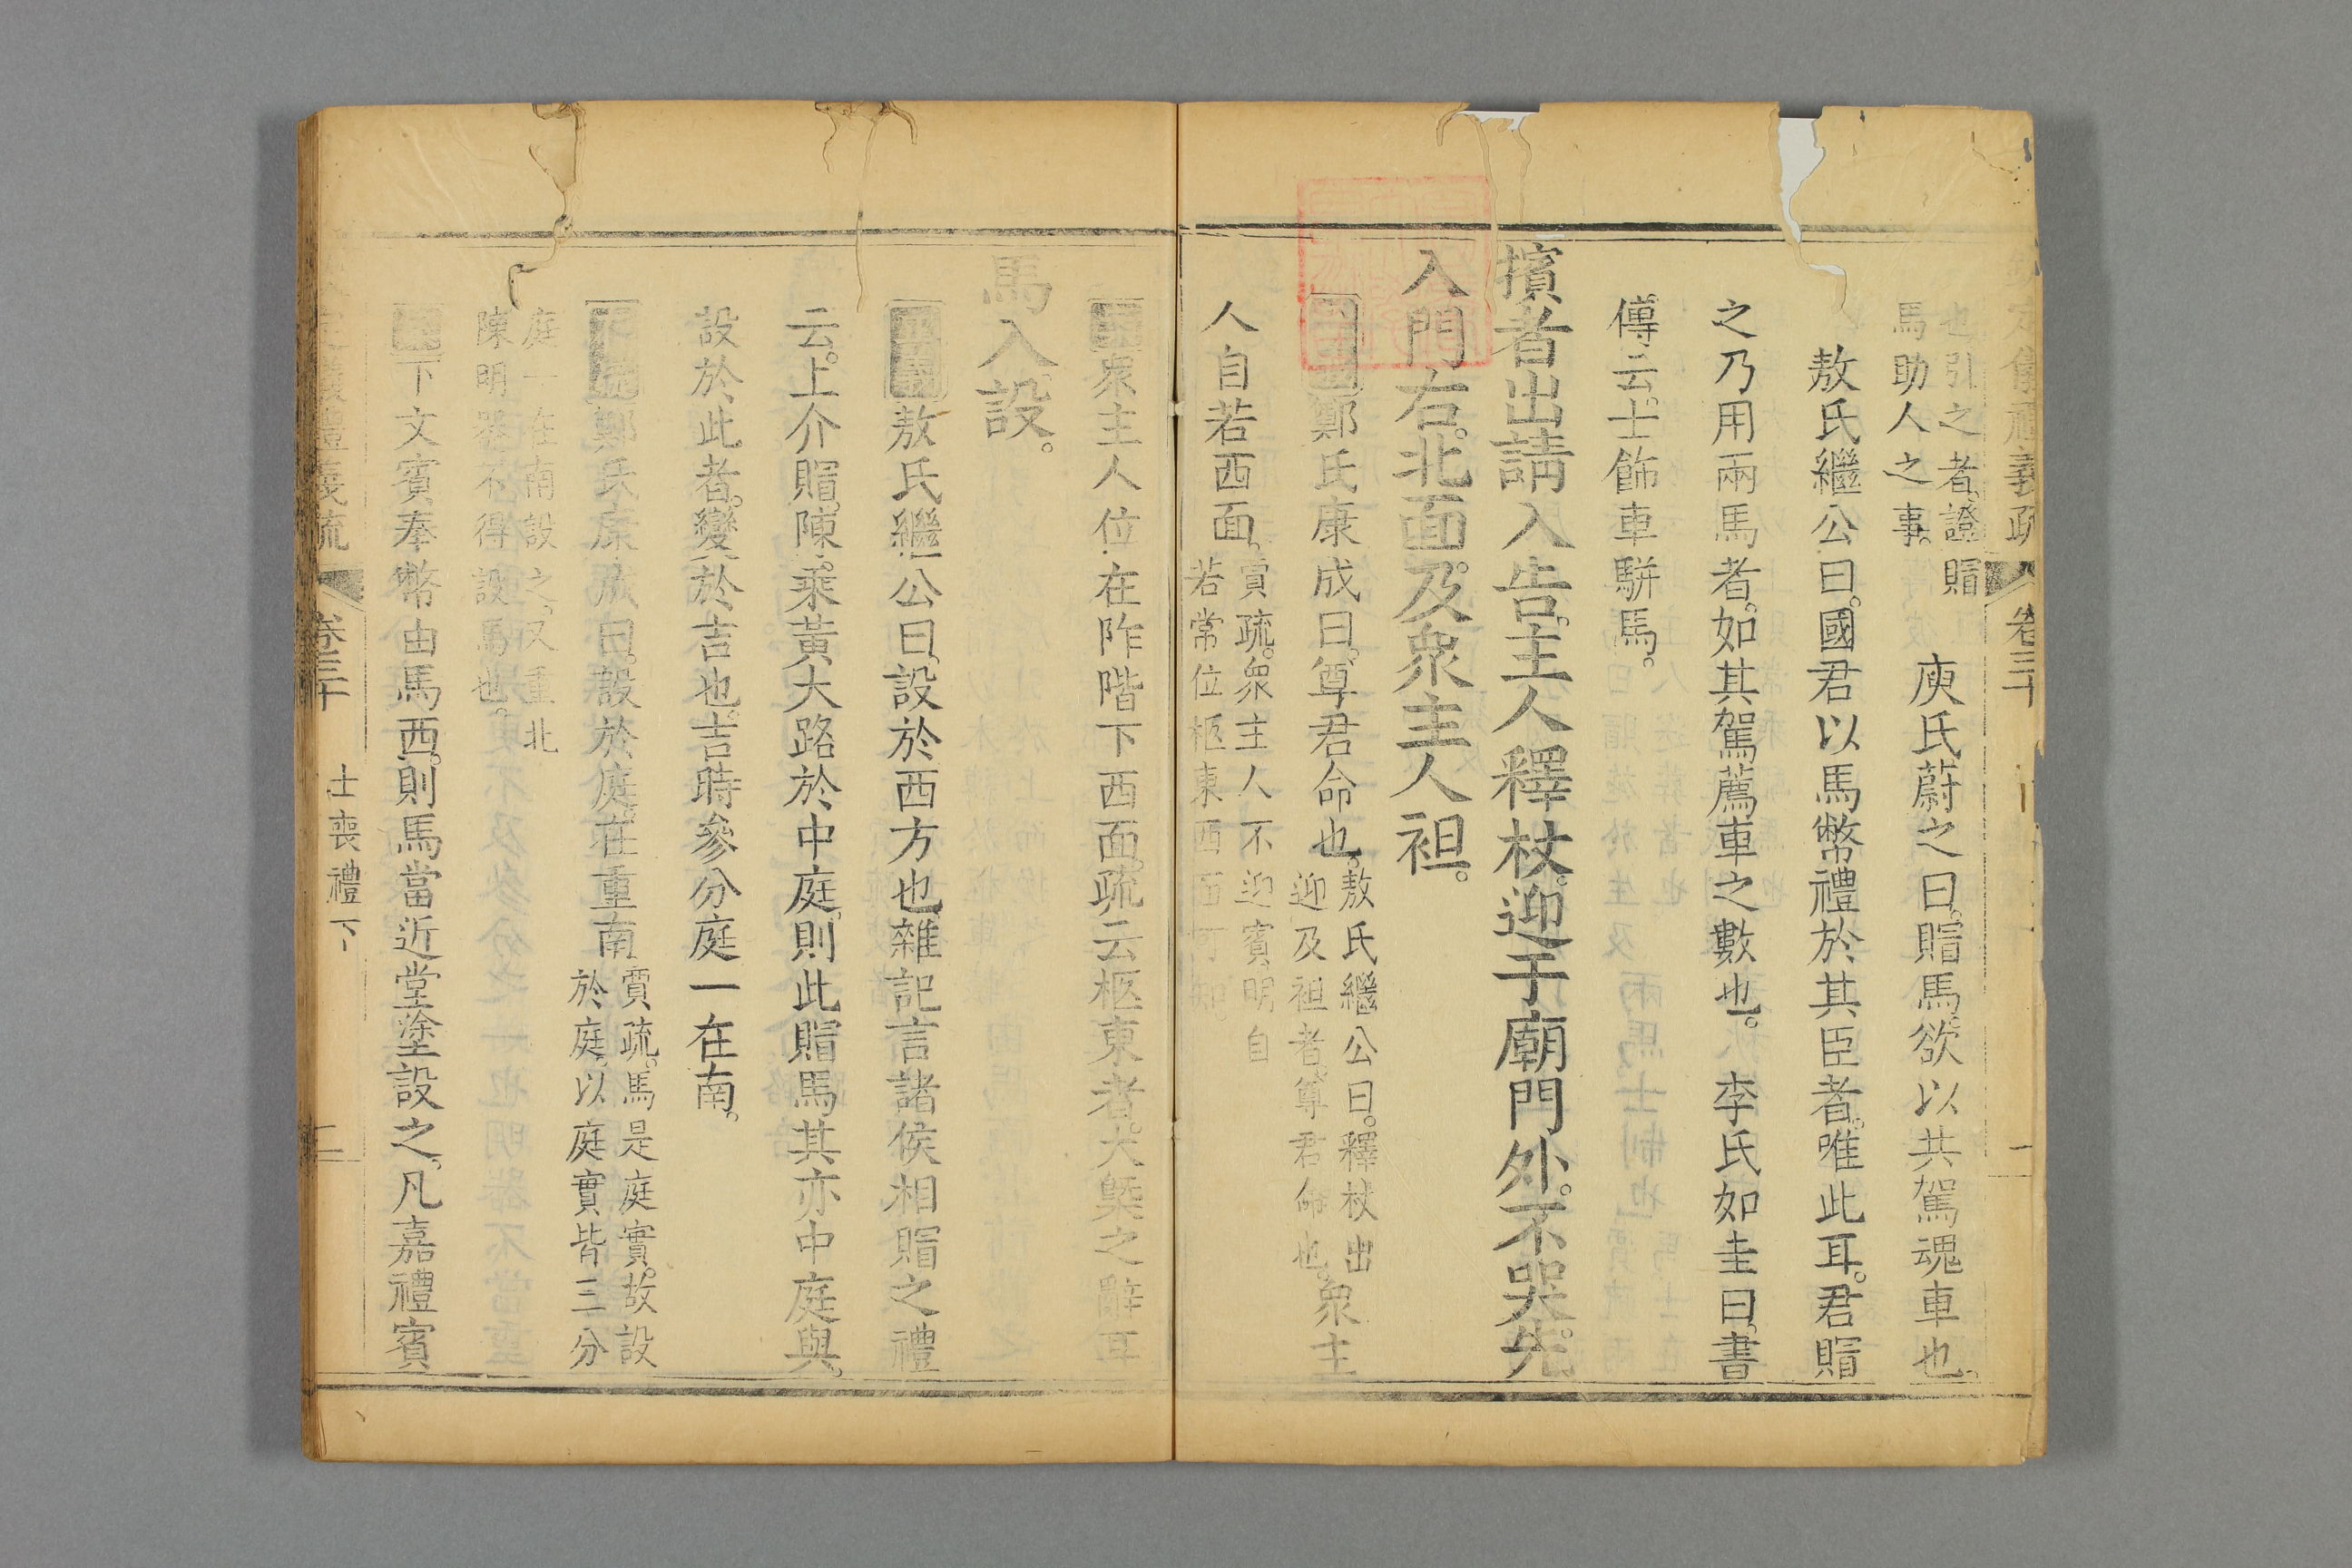 也引之者證賵
馬助人之事。
庾氏蔚之曰。賵馬欲以共駕魂車也。
敖氏繼公曰。國君以馬幣禮於其臣者。唯此耳。君賵
之乃用兩馬者。如其駕薦車之數也。 李氏如圭曰。書
傳云。士飾車駢馬。
擯者出請入告。主人釋杖。迎于廟門外。不哭。先
入門右。北面。及衆主人袒。
鄭氏康成曰。尊君命也。
敖氏繼公曰。釋杖出
迎及袒者尊君命也。
衆主
人自若西面。
賈疏。衆主人不迎賓明自
若常位柩東西面可知。
衆主人位在阼階下西面。疏云柩東者。大槩之辭耳
馬入設。
敖氏繼公曰。設於西方也。雜記言諸侯相賵之禮
云。上介賵。陳乘黃大路於中庭。則此賵馬其亦中庭與。
設於此者。變於吉也。吉時參分庭一在南。
鄭氏康成曰。設於庭。在重南
賈疏。馬是庭實。故設
於庭。以庭實皆三分
庭一在南設之。又重北
陳明器不得設馬也。
下文賓奉幣由馬西。則馬當近堂塗設之。凡嘉禮賓
義疏
卷三十
士喪禮下
二
儀禮義疏
卷三十